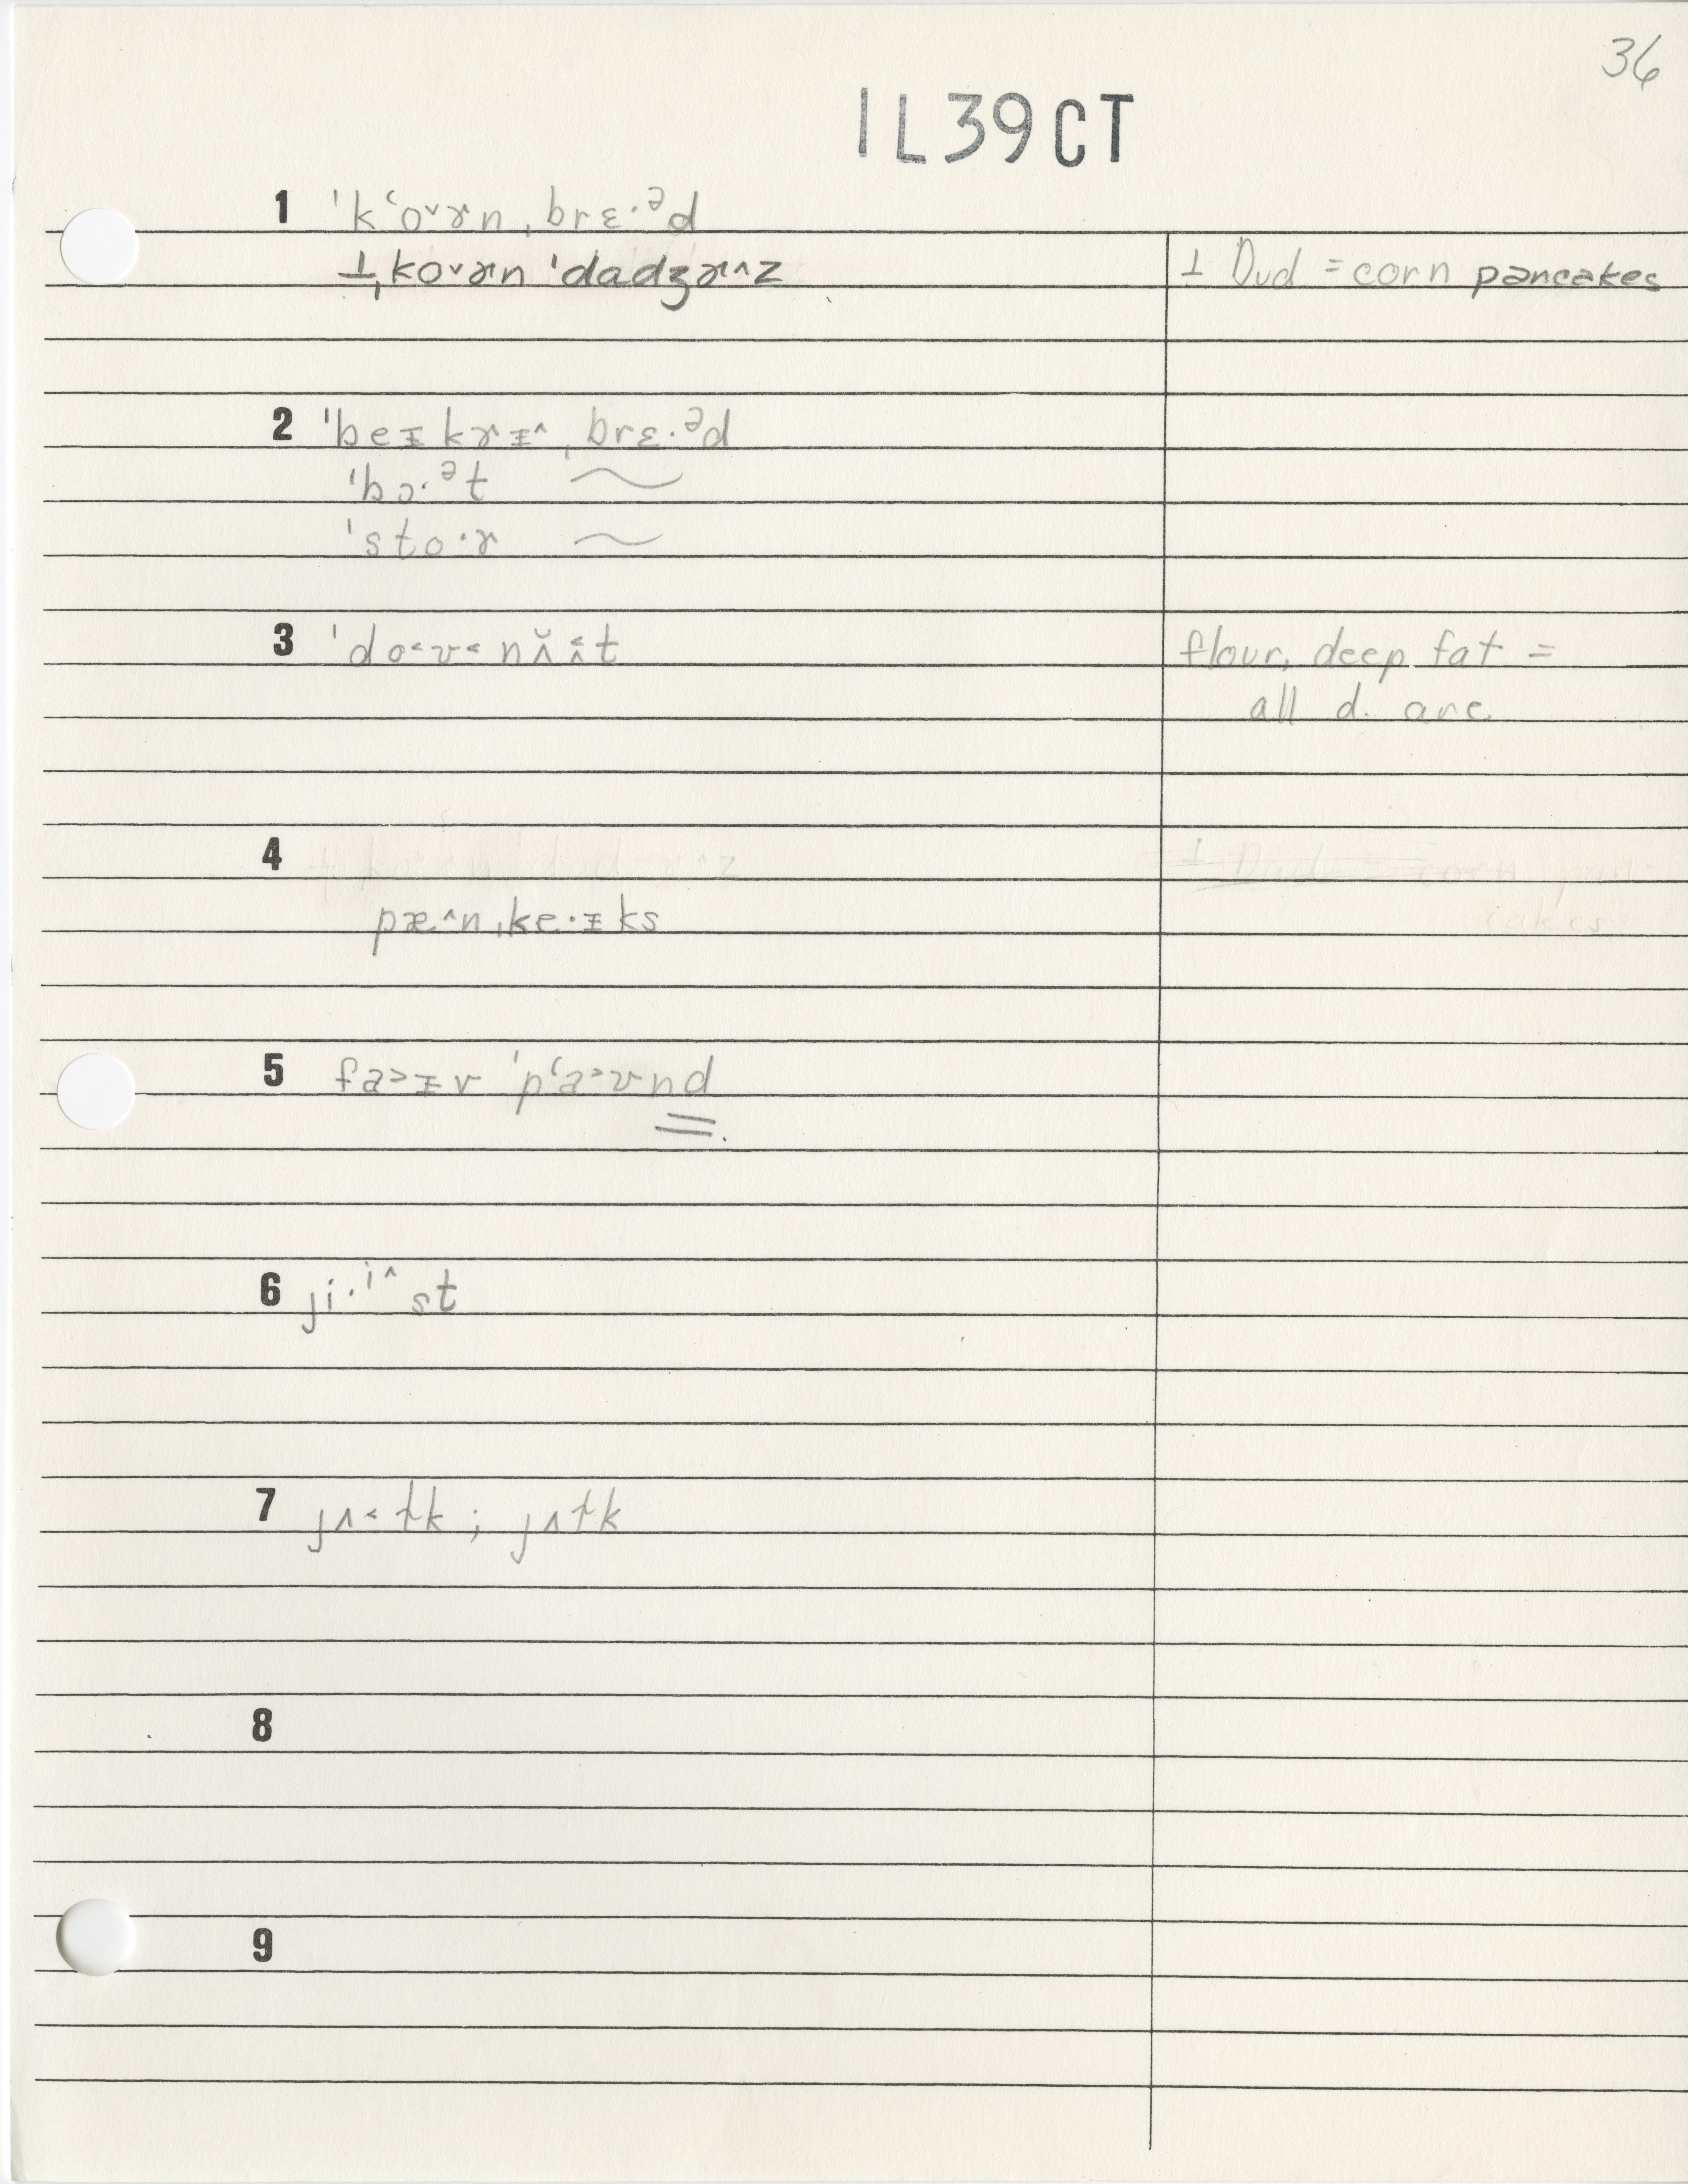 36
1L39CT
1 ˈkʻo˅ɤn ˌbrɛ·ᵊd
⊥ ˌko˅ɤn ˈdadʒɤ˄z ⊥ Dud = corn pancakes
2 ˈbeᵻkɤᵻ˄ ˌbrɛ·ᵊd
ˈbɔ·ᵊt ~
ˈsto·ɤ ~
3 ˈdo˂ʊ˂nʌ̆ʌ̂˂t flour, deep fat =
all d. are
4
pæ˄nˌke·ᵻks
5 fa˃ᵻv ˈpʻa˃ʊnd
6 ji·ⁱ˄st
7 jʌ˂ɫk ; jʌɫk
8
9